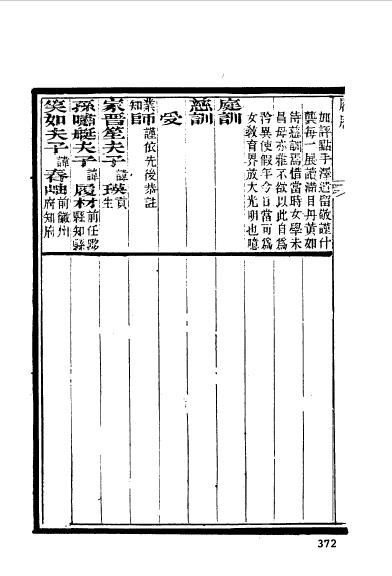 加評點手澤遺留敬謹什
襲每一展讀滿目丹黃如
侍慈訓焉惜當時女學未
昌母亦雅不欲以此自為
矜異使假年今日當可為
女敎育界放大光明也噫
庭訓
慈訓
受
業師謹依先後恭註
知
家晋笙夫子諱瑛貢生
孫嘯䑓夫子諱履材前任縣知縣
笑如夫子諱春前徽州府知府
372